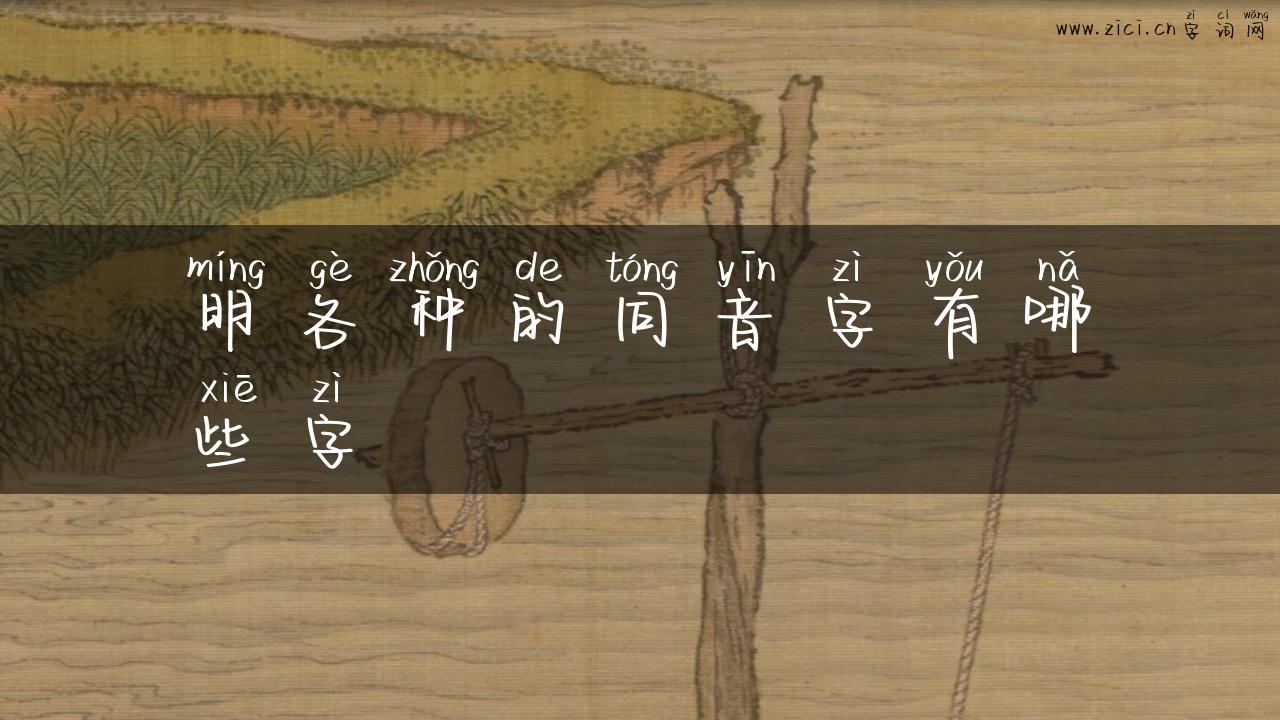 zì cí wǎng
www.zici.cn 字 词 网
míng gè zhǒng de tóng yīn zì yǒu nǎ
明 各 种 的 同 音 字 有 哪
xiē zì
些 字